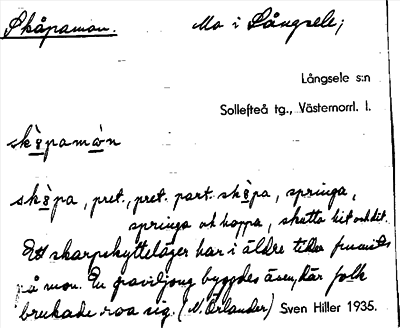 Skåpamon. Mo i Långsele;
Långsele s:n
Sollefteå tg., Västernorrl. l.
skò̤pamò̤n
skò̤pa, pret., pret. part. skò̤pa, springa,
springa och hoppa, skutta hit och dit.
Ett skarpskytteläger har i äldre tider funnits
på mon. En paviljong byggdes även, där folk
brukade roa sig. (N. Örlander) Sven Hiller 1935.